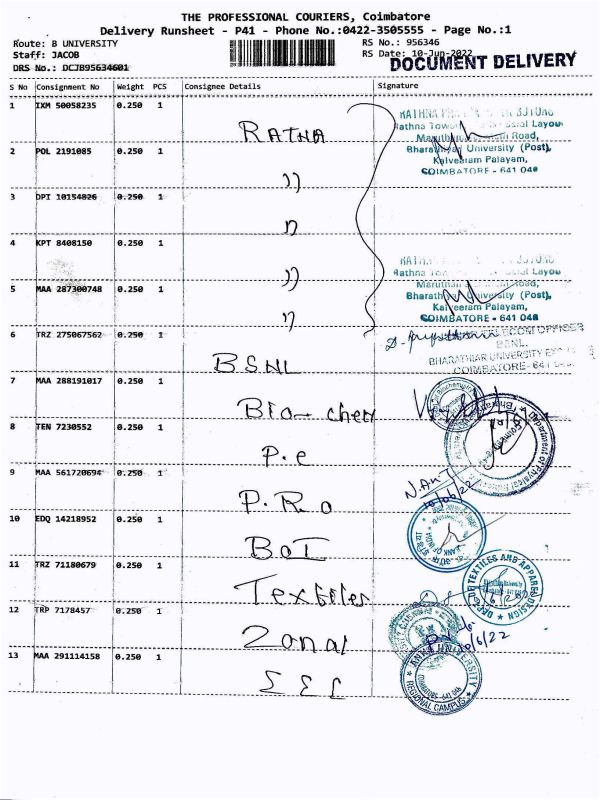 THE PROFESSIONAL COURIERS, Coimbatore
Delivery Runsheet - P41 - Phone No.:0422-3505555 - Page No.:1
Route: B UNIVERSITY
RS No.: 956346
Staff: JACOB
RS Date: 10-Jun-2022
DRS No.: DCJB95634601
DOCUMENT DELIVERY
S No Consignment No Weight PCS Consignee Details Signature
1 IXM 50058235 0.250 1 RATNA
2 POL 2191085 0.250 1 〃
3 DPI 10154826 0.250 1 〃
4 KPT 8408150 0.250 1 〃
5 MAA 287300748 0.250 1 〃
6 TRZ 275067562 0.250 1 BSNL
7 MAA 288191017 0.250 1 Bio-chem
8 TEN 7230552 0.250 1 P.e
9 MAA 561720694 0.250 1 P.R.o
10 EDQ 14218952 0.250 1 BoI
11 TRZ 71180679 0.250 1 Textiles
12 TRP 7178457 0.250 1 Zonal
13 MAA 291114158 0.250 1
Road,
Bharathiar University (Post),
Kalveeram Palayam,
COIMBATORE - 641 046
Road,
Bharathiar University (Post),
Kalveeram Palayam,
COIMBATORE - 641 046
BSNL
BHARATHIAR UNIVERSITY
COIMBATORE - 641
10/06/22
TEXTILES AND APPAREL DESIGN
UNIVERSITY
REGIONAL CAMPUS
COIMBATORE - 641 046